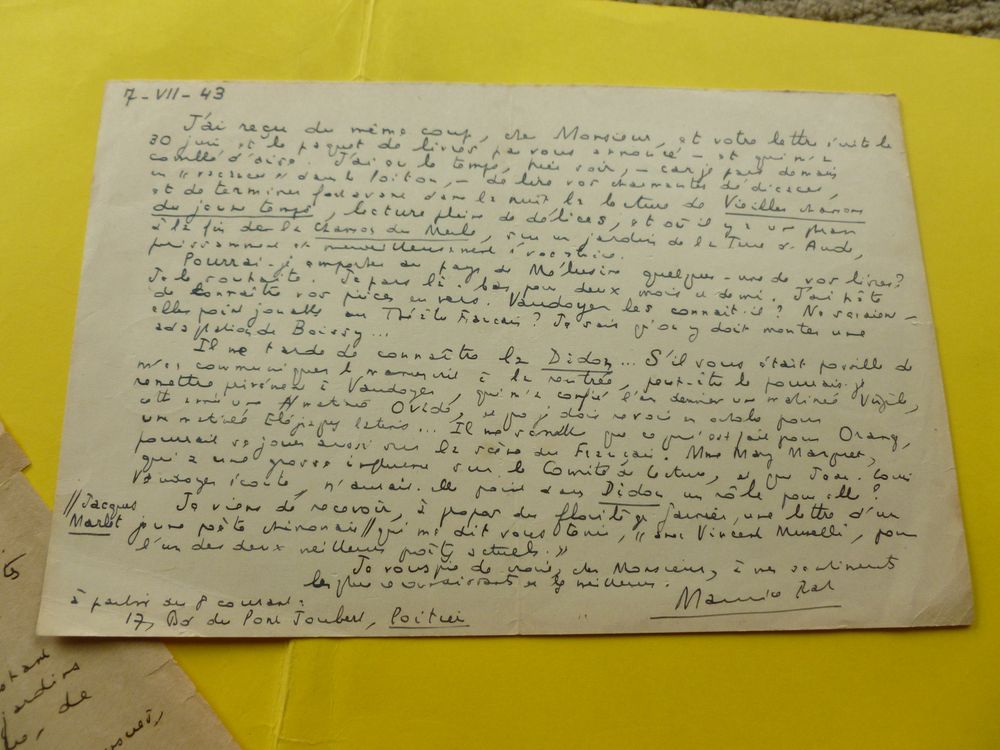 7-VII-43
J'ai reçu du même coup, cher Monsieur, et votre lettre écrite le
30 juin et le paquet de livres par vous annoncé – et qui m'a
comblé d'aise. J'ai eu le temps, hier soir, – car je pars demain
en "vacances" dans le Poitou, – de lire vos charmantes dédicaces,
et de terminer fort avant dans la nuit la lecture de Vieilles chansons
du jeune temps, lecture pleine de délices, et où il y a un
à la fin de la Chanson du Merle, sur un jardin de la Ture s. Aude,
puissamment et merveilleusement évocatrice.
Pourrai-je emporter au pays de Mélusine quelques-uns de vos livres?
Je le souhaite. Je pars là-bas pour deux mois et demi. J'ai hâte
de connaître vos pièces en vers. Vaudoyer les connait-il? Ne seraient-
elles point jouables au Théâtre Français? Je sais qu'on y doit monter une
adaptation de Boissy...
Il me tarde de connaître la Didon... S'il vous était possible de
m'en communiquer le manuscrit à la rentrée, peut-être le pourrais-je
remettre à Vaudoyer, qui m'a confié l'an dernier un matinée Virgile,
cette année une matinée Ovide, et que je dois revoir en octobre pour
une matinée Elégiaques latins... Il me semble que ce qui est fait pour Orange,
pourrait se jouer aussi sur la scène du Français. Mme Mary Marquet,
qui a une grosse influence sur le Comité de lecture, et que Jean-Louis
Vaudoyer écoute, n'aurait-elle point dans Didon un rôle pour elle?
Je viens de recevoir, à propos du florilège , une lettre d'un
jeune poète chinonais // qui me dit vous tenir, "avec Vincent Muselli, pour
l'un des deux meilleurs poètes actuels."
//Jacques
Marlet
Je vous prie de croire, cher Monsieur, à mes sentiments
les plus reconnaissants et les meilleurs.
Maurice Rat
à partir du 8 courant:
17, Bd du Pont Joubert, Poitiers
jardins
de